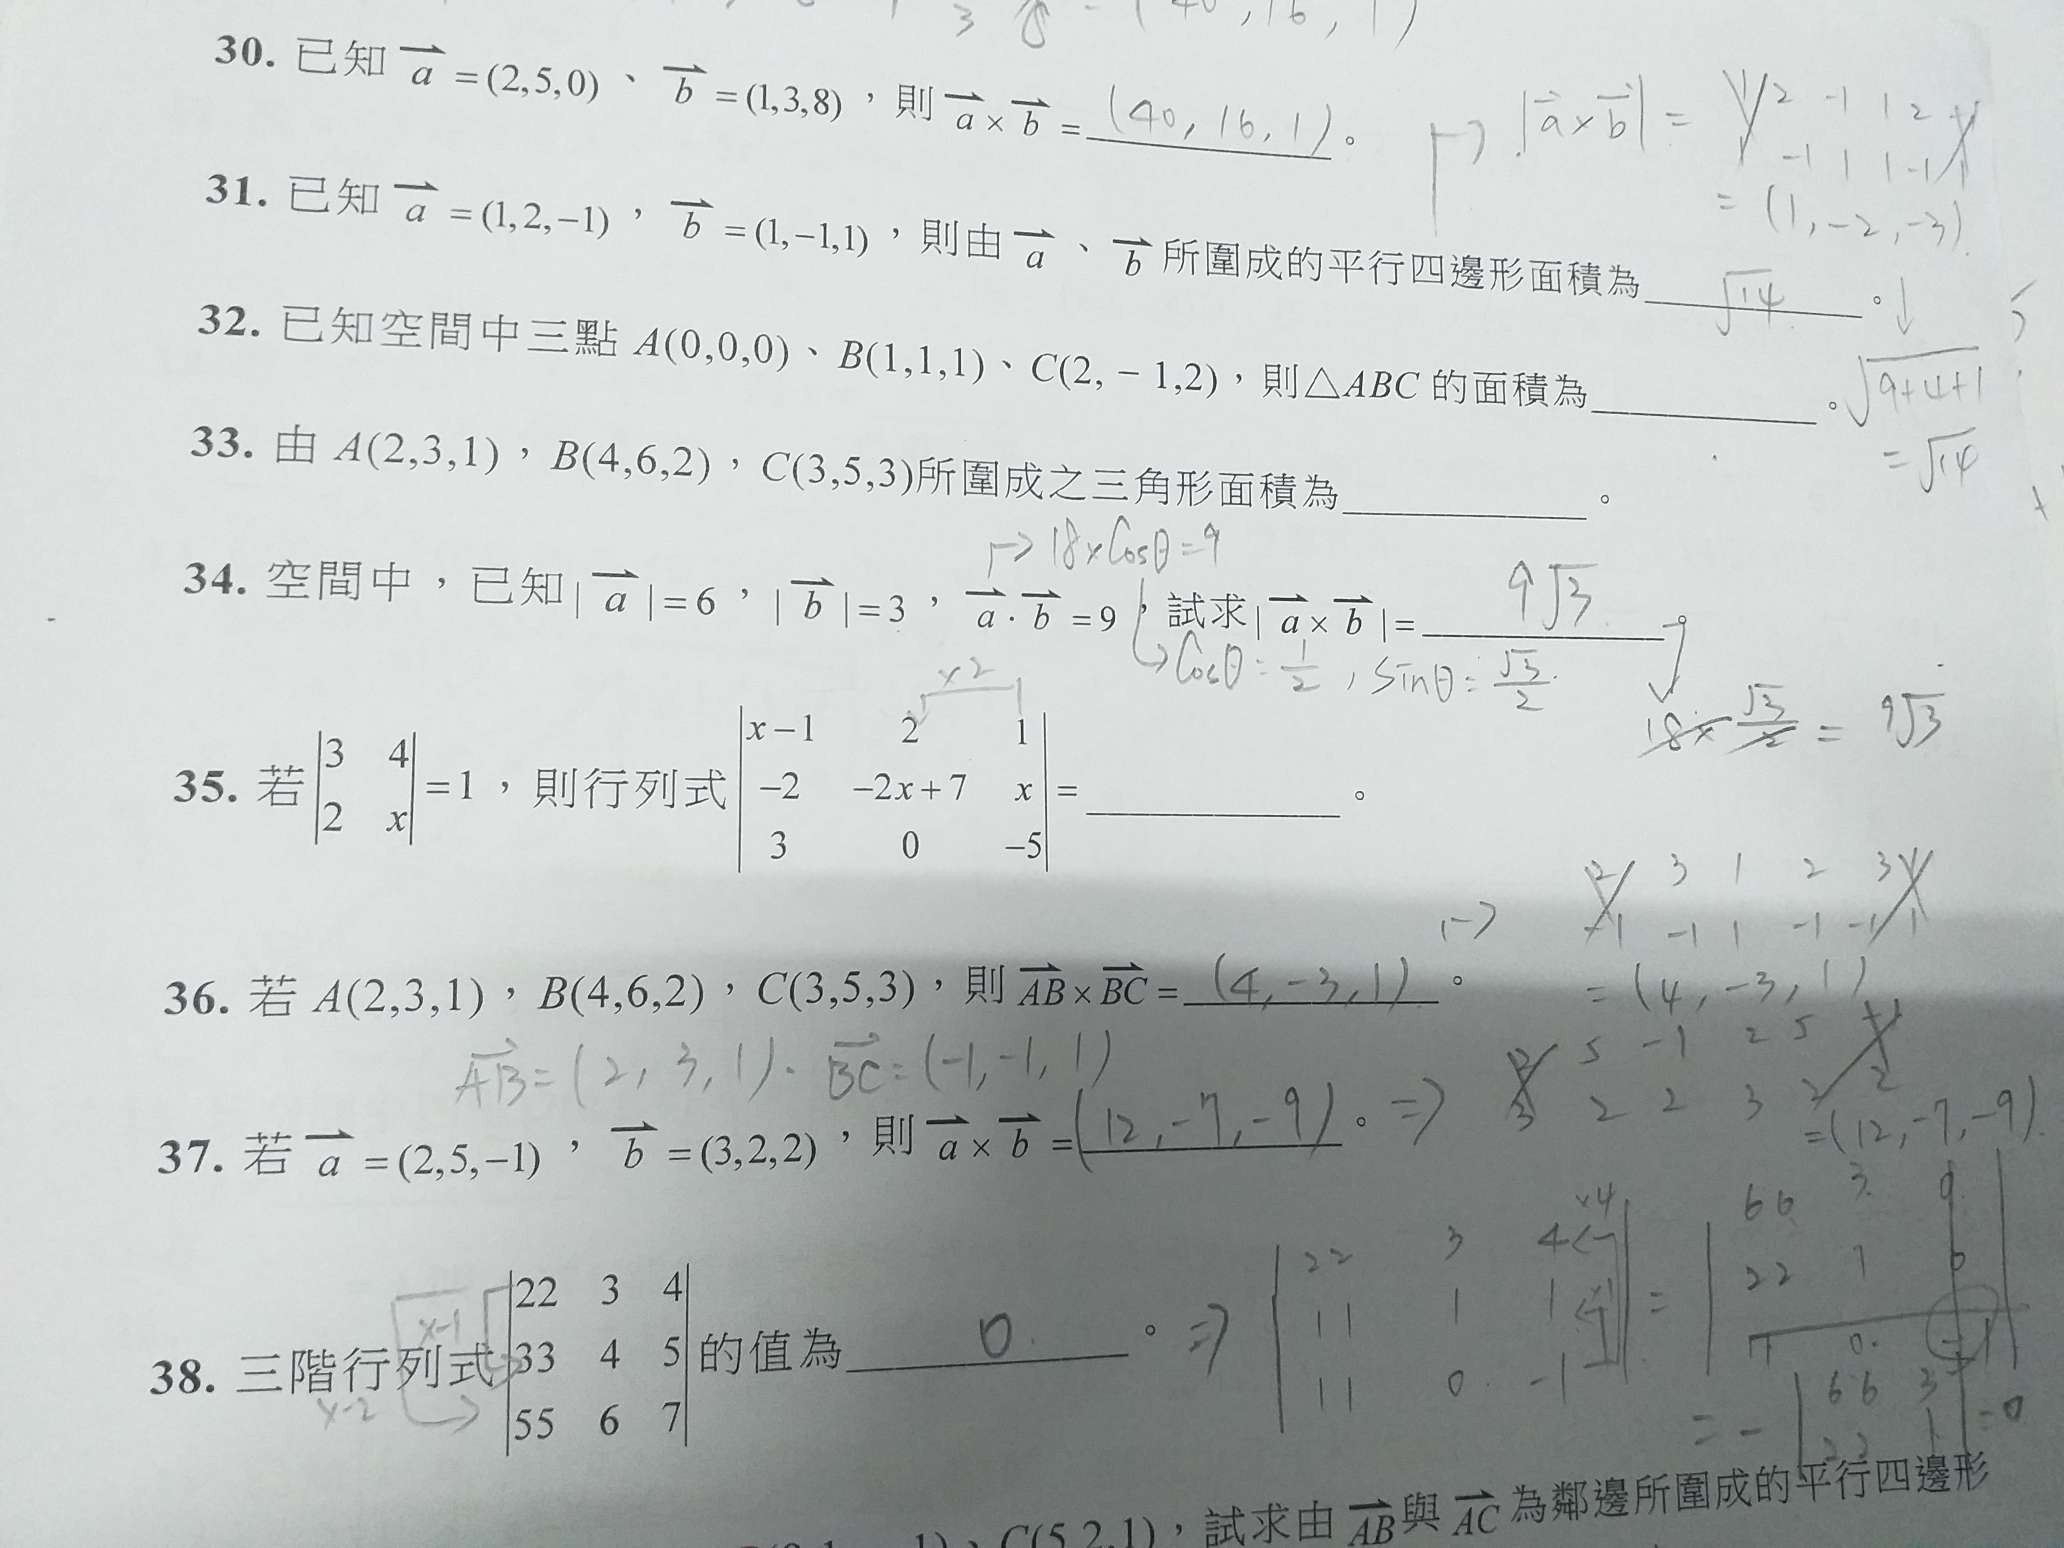 3 = (40,16,1)
30. 已知 a = (2,5,0) 、 b = (1,3,8) ,則 a × b = (40,16,1) 。
|a×b| = 1 2 -1 1 2 -1
1 -1 1 1 -1 1
= (1,-2,-3)
31. 已知 a = (1,2,−1) , b = (1,−1,1) ,則由 a 、 b 所圍成的平行四邊形面積為 √14 。
32. 已知空間中三點 A(0,0,0)、B(1,1,1)、C(2,−1,2),則△ABC 的面積為 。
√9+4+1
= √14
33. 由 A(2,3,1),B(4,6,2),C(3,5,3)所圍成之三角形面積為 。
18×Cosθ=9
34. 空間中,已知| a |=6,| b |=3, a · b =9,試求| a × b |= 9√3
Cosθ = 1/2 , Sinθ = √3/2
18× √3/2 = 9√3
×2
35. 若 |3 4; 2 x| =1,則行列式 |x−1 2 1; −2 −2x+7 x; 3 0 −5| = 。
2 3 1 2 3 1
-1 -1 1 -1 -1 1
36. 若 A(2,3,1),B(4,6,2),C(3,5,3),則 AB × BC = (4,-3,1) 。
= (4,-3,1)
AB = (2,3,1). BC = (-1,-1,1)
2 5 -1 2 5 -1
3 2 2 3 2 2
37. 若 a = (2,5,−1) , b = (3,2,2) ,則 a × b = (12,-7,-9) 。⇒
= (12,-7,-9)
38. 三階行列式 |22 3 4; 33 4 5; 55 6 7| 的值為 0 。⇒
×-1
×-2
22 3 4 ×4
11 1 1 ×1
11 0 -1
= 66 3 0
22 1 0
11 0 -1
= - |66 3; 22 1| = 0
C(5,2,1),試求由 AB 與 AC 為鄰邊所圍成的平行四邊形